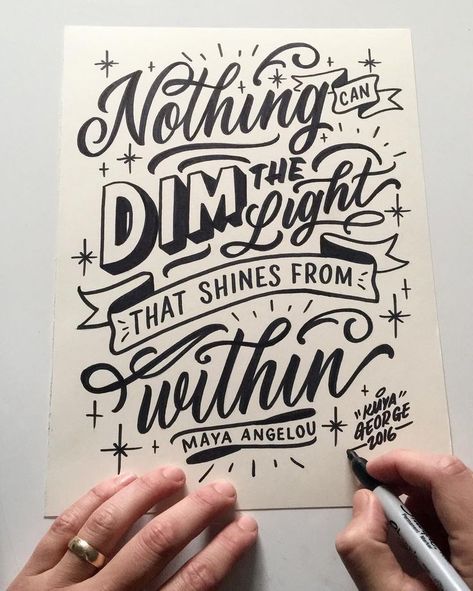 Nothing CAN
DIM THE Light
THAT SHINES FROM
within
MAYA ANGELOU
"KUYA"
GEORGE
2016